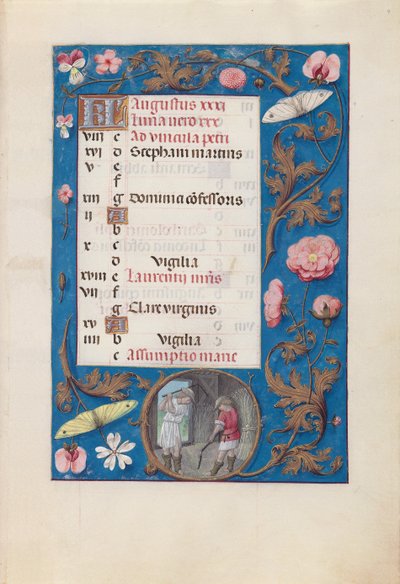 KL Augustus xxxi
luna vero xxx
viii c Ad vincula petri
xvi d Stephani martiris
v e
f
xiii g Dominici cōfessoris
ii A
b
x c
d Vigilia
xviii e Laurentii mris
vii f
g Clare virginis
xv A
iiii b Vigilia
c Assumptio marie